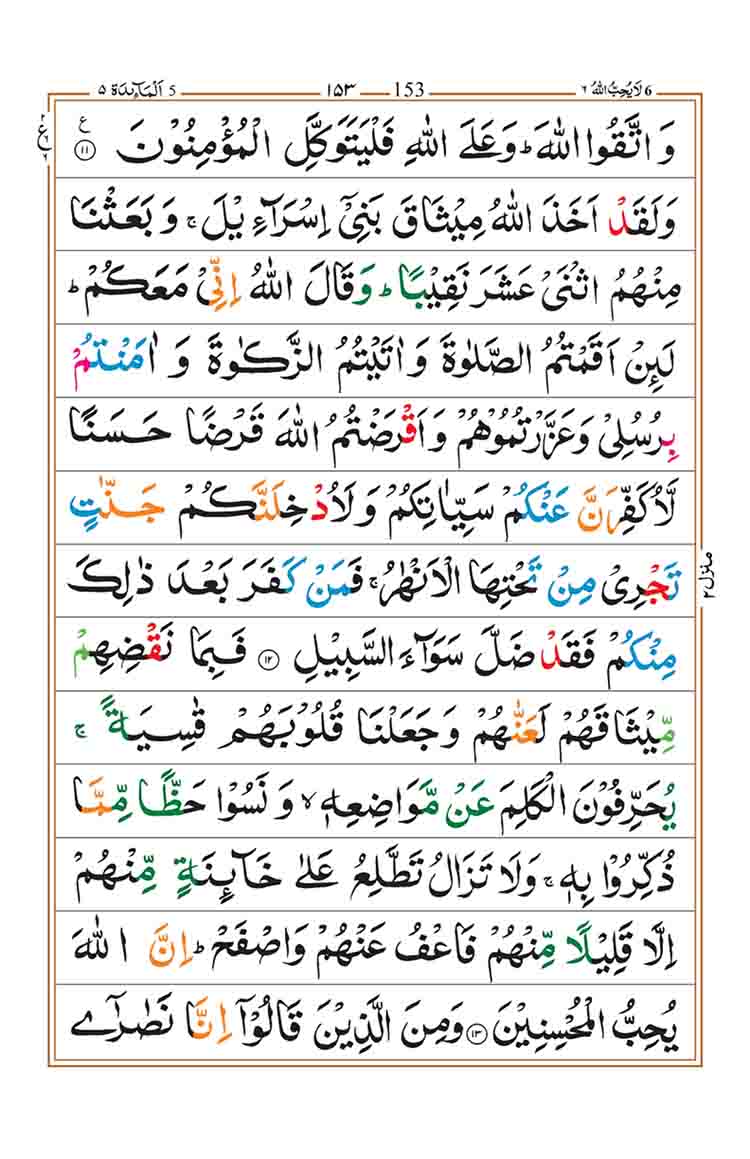 6 لَا يُحِبُّ اللهُ ٦ 153 ١٥٣ 5 اَلْمَآئِدَة ٥
وَ اتَّقُوا اللّٰهَ ؕ وَ عَلَی اللّٰهِ فَلْیَتَوَكَّلِ الْمُؤْمِنُوْنَ ۝۱۱ ع
وَ لَقَدْ اَخَذَ اللّٰهُ مِیْثَاقَ بَنِیْۤ اِسْرَآءِیْلَ ۚ وَ بَعَثْنَا
مِنْهُمُ اثْنَیْ عَشَرَ نَقِیْبًا ؕ وَ قَالَ اللّٰهُ اِنِّیْ مَعَكُمْ ؕ
لَىِٕنْ اَقَمْتُمُ الصَّلٰوةَ وَ اٰتَیْتُمُ الزَّكٰوةَ وَ اٰمَنْتُمْ
بِرُسُلِیْ وَ عَزَّرْتُمُوْهُمْ وَ اَقْرَضْتُمُ اللّٰهَ قَرْضًا حَسَنًا
لَّاُكَفِّرَنَّ عَنْكُمْ سَیِّاٰتِكُمْ وَ لَاُدْخِلَنَّكُمْ جَنّٰتٍ
تَجْرِیْ مِنْ تَحْتِهَا الْاَنْهٰرُ ۚ فَمَنْ كَفَرَ بَعْدَ ذٰلِكَ
مِنْكُمْ فَقَدْ ضَلَّ سَوَآءَ السَّبِیْلِ ۝۱۲ فَبِمَا نَقْضِهِمْ
مِّیْثَاقَهُمْ لَعَنّٰهُمْ وَ جَعَلْنَا قُلُوْبَهُمْ قٰسِیَةً ۚ
یُحَرِّفُوْنَ الْكَلِمَ عَنْ مَّوَاضِعِهٖ ۙ وَ نَسُوْا حَظًّا مِّمَّا
ذُكِّرُوْا بِهٖ ۚ وَ لَا تَزَالُ تَطَّلِعُ عَلٰی خَآىِٕنَةٍ مِّنْهُمْ
اِلَّا قَلِیْلًا مِّنْهُمْ فَاعْفُ عَنْهُمْ وَ اصْفَحْ ؕ اِنَّ اللّٰهَ
یُحِبُّ الْمُحْسِنِیْنَ ۝۱۳ وَ مِنَ الَّذِیْنَ قَالُوْۤا اِنَّا نَصٰرٰۤی
منزل ۲